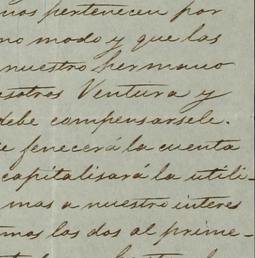 nos pertenecen por
no modo y que las
nuestro hermano
esotros Ventura y
debe compensarsele.
e fenecerá la cuenta
capitalisará la utili-
mas a nuestro interes
mos los dos al prime-